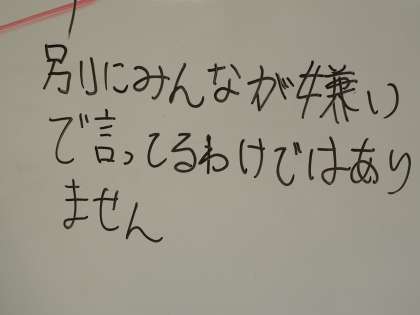 別にみんなが嫌い
で言ってるわけではあり
ません